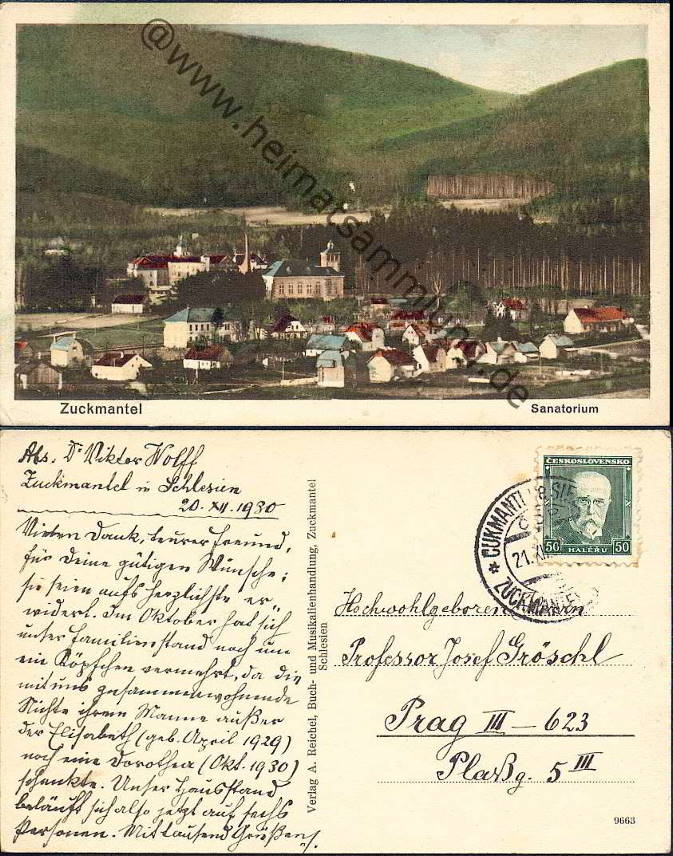 @www.heimatsammlung.de
Zuckmantel
Sanatorium
Abs. Dr Viktor Wolff
Zuckmantel in Schlesien
20. XII. 1930
Vielen Dank, teurer Freund,
für Deine gütigen Wünsche;
sie seien aufs herzlichste er„
widert. Im Oktober hat sich
unser Familienstand noch um
ein Köpfchen vermehrt, da die
mit uns zusammenwohnende
Nichte ihrem Manne außer
der Elisabeth (geb. April 1929)
noch eine Dorothea (Okt. 1930)
schenkte. Unser Hausstand
beläuft sich also jetzt auf sechs
Personen. Mit tausend Grüßen
Verlag A. Reichel, Buch- und Musikalienhandlung, Zuckmantel
Schlesien
ČESKOSLOVENSKO
50 HALÉŘŮ 50
* CUKMANTL
21. XII
ZUCKMANTEL
Hochwohlgeboren Herrn
Professor Josef Gröschl
Prag III - 623
Plaßg. 5 III
9663